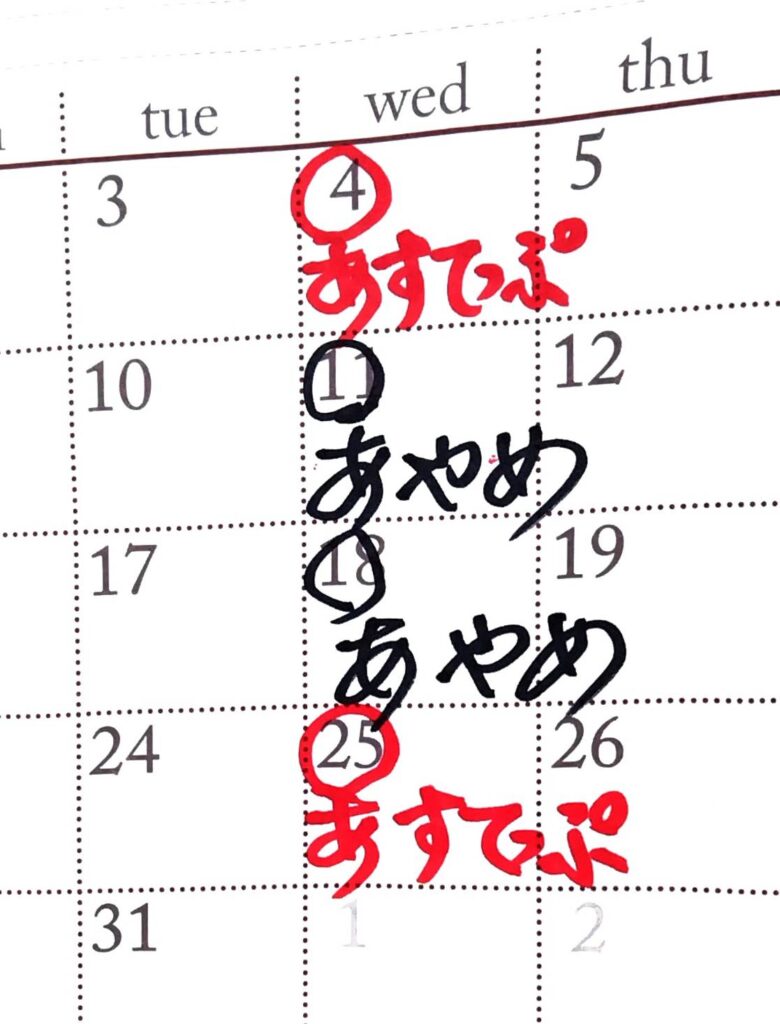 tue wed thu
3 4 5
あすてっぷ
10 11 12
あやめ
17 18 19
あやめ
24 25 26
あすてっぷ
31 1 2